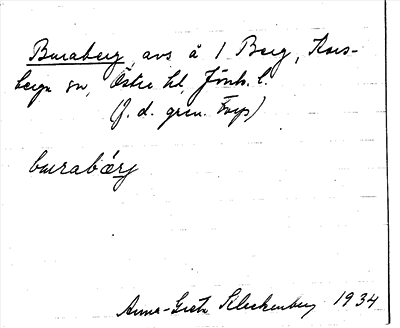 Buraberg, avs å 1 Berg, Kors-
berga sn, Östra hd, Jönk. l.
(J. d. gren.
burabärj
Anna-Greta Schleckenberg 1934